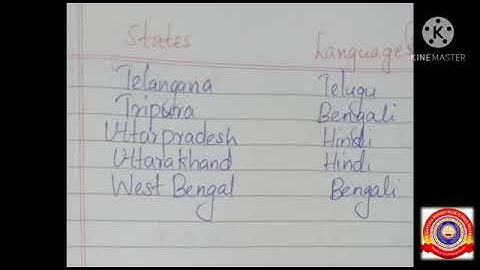 States Languages
Telangana Telugu
Tripura Bengali
Uttarpradesh Hindi
Uttarakhand Hindi
West Bengal Bengali
KINEMASTER